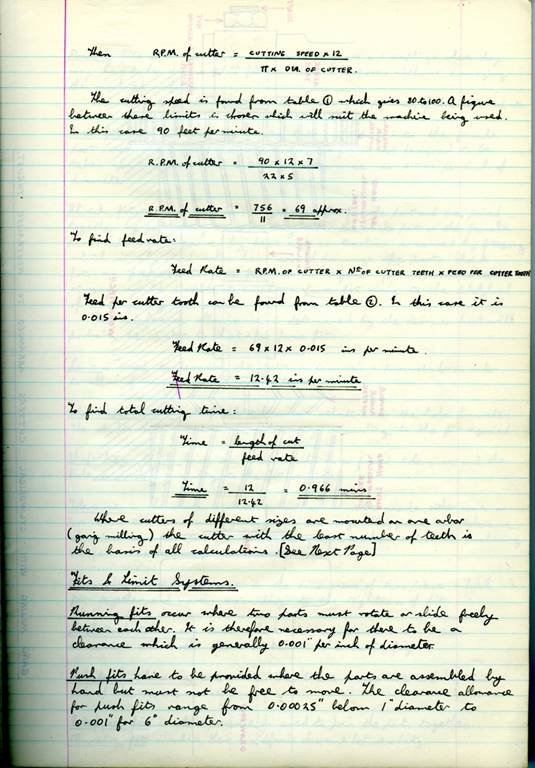 Then R.P.M. of cutter = CUTTING SPEED × 12
π × DIA. OF CUTTER.
The cutting speed is found from table ① which gives 80 to 100. A figure
between these limits is chosen which will suit the machine being used.
In this case 90 feet per minute.
R.P.M. of cutter = 90 × 12 × 7
22 × 5
R.P.M. of cutter = 756 = 69 approx.
11
To find feed rate:
Feed Rate = R.P.M. OF CUTTER × No OF CUTTER TEETH × FEED PER CUTTER TOOTH
Feed per cutter tooth can be found from table ②. In this case it is
0.015 ins.
Feed Rate = 69 × 12 × 0.015 ins per minute.
Feed Rate = 12.42 ins per minute
To find total cutting time:
Time = length of cut
feed rate
Time = 12 = 0.966 mins
12.42
Where cutters of different sizes are mounted on one arbor
(gang milling) the cutter with the least number of teeth is
the basis of all calculations. [See Next Page]
Fits & Limit Systems.
Running fits occur where two parts must rotate or slide freely
between each other. It is therefore necessary for there to be a
clearance which is generally 0.001" per inch of diameter.
Push fits have to be provided where the parts are assembled by
hand but must not be free to move. The clearance allowance
for push fits range from 0.00025" below 1" diameter to
0.001" for 6" diameter.